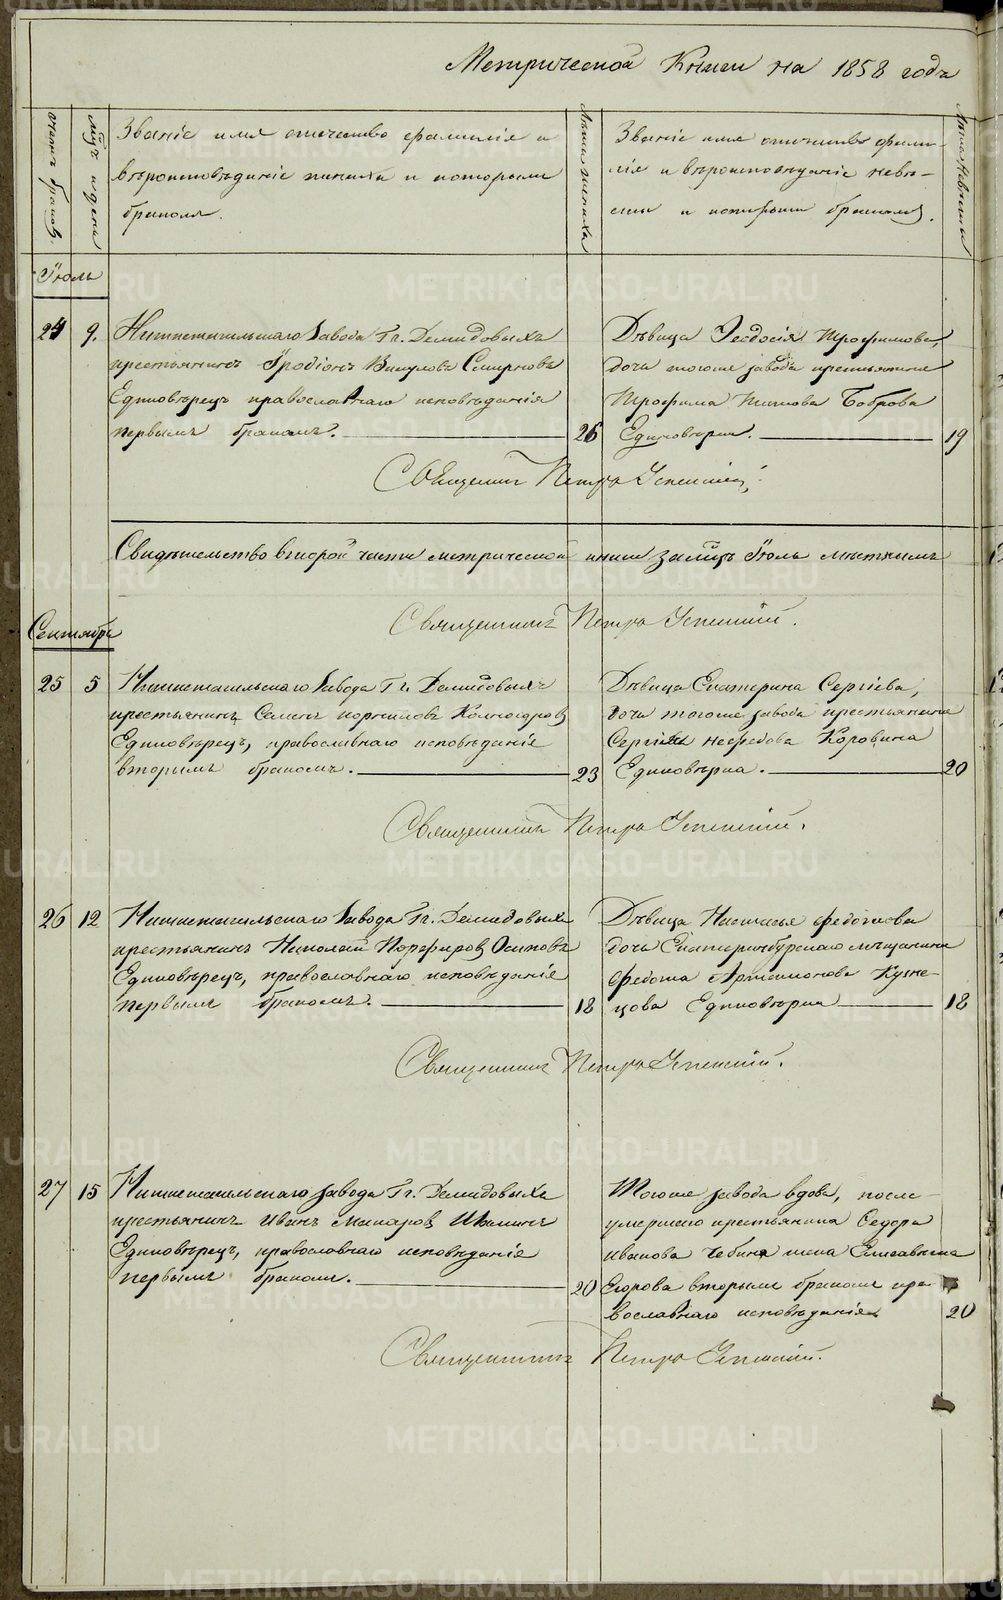 Метрической Книги на 1858 годъ
счетъ браковъ.
Званіе имя отечество фамилія и
вѣроисповѣданіе жениха и которымъ
бракомъ.
Лѣта жениха
Званіе имя отечество фами-
лія и вѣроисповѣданіе невѣ-
сты и которымъ бракомъ.
Лѣта невѣсты
Іюль
24 9. Нижнетагильскаго Завода Гг. Демидовыхъ
крестьянинъ Іродіонъ Викуловъ Смирновъ
Единовѣрецъ православнаго исповѣданія
первымъ бракомъ. 26
Дѣвица Ѳеодосія Трофимова,
дочь тогоже завода крестьянина
Трофима Титова Боброва
Единовѣрка. 19
Священникъ Петръ Успенскій.
Свидѣтельство второй части метрической книги за Іюль мѣсяцъ
Священникъ Петръ Успенскій.
Сентябрь
25 5 Нижнетагильскаго Завода Гг. Демидовыхъ
крестьянинъ Семенъ корниловъ
Единовѣрецъ, православнаго исповѣданіе
вторымъ бракомъ. 23
Дѣвица Екатерина Сергіева,
дочь тогоже завода крестьянина
Сергія нефедова Коровина
Единовѣрка. 20
Священникъ Петръ Успенскій.
26 12 Нижнетагильскаго Завода Гг. Демидовыхъ
крестьянинъ Николай Порфировъ Осиповъ
Единовѣрецъ, православнаго исповѣданіе
первымъ бракомъ. 18
Дѣвица Настасья Федотова
дочь Екатеринбургскаго мѣщанина
Федота Артамонова Кузне-
цова Единовѣрка 18
Священникъ Петръ Успенскій.
27 15 Нижнетагильскаго завода Гг. Демидовыхъ
крестьянинъ Иванъ Макаровъ
Единовѣрецъ, православнаго исповѣданіе
первымъ бракомъ. 20
Тогоже завода вдова, после
умершаго крестьянина Федора
иванова жена Елисавета
Егорова вторымъ бракомъ пра-
вославнаго исповѣданія 20
Священникъ Петръ Успенскій.
METRIKI.GASO-URAL.RU